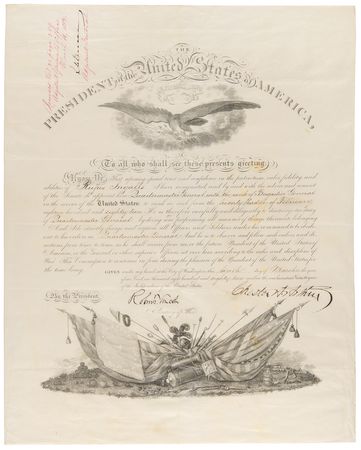 THE
PRESIDENT of the United States of AMERICA,
To all who shall see these presents greeting:
Know Ye, That reposing special trust and confidence in the patriotism, valor, fidelity and
abilities of Rufus Ingalls I have nominated and by and with the advice and consent
of the Senate do appoint him Quartermaster General with the rank of Brigadier General
in the service of the United States: to rank as such from the twenty third day of February
eighteen hundred and eighty two. He is therefore carefully and diligently to discharge the duty of
Quartermaster General by doing and performing all manner of things thereunto belonging.
And I do strictly charge and require all Officers and Soldiers under his command to be obedient
to his orders as Quartermaster General. And he is to observe and follow such orders and directions
from time to time as he shall receive from me or the future President of the United States of
America, or the General or other superior officers set over him according to the rules and discipline of
War. This Commission to continue in force during the pleasure of the President of the United States for
the time being.
GIVEN under my hand at the City of Washington this day of March in the year
of our Lord one thousand eight hundred and eighty two and in the one hundred and sixth year
of the Independence of the United States.
By the President,
Chester A. Arthur
Secretary of War